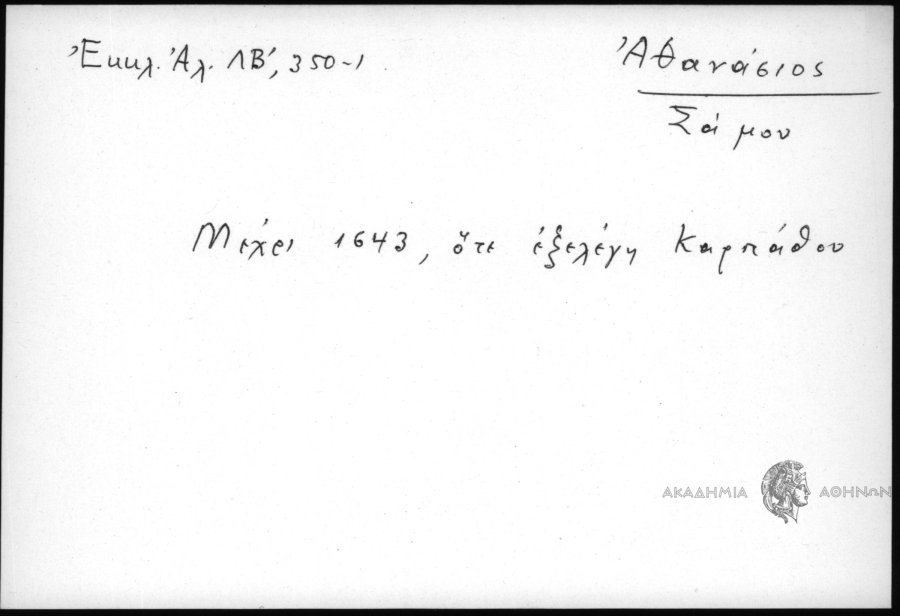 Ἐκκλ. Ἀλ. ΛΒ', 350-1
Ἀθανάσιος
Σάμου
Μέχρι 1643, ὅτε ἐξελέγη Καρπάθου
ΑΚΑΔΗΜΙΑ ΑΘΗΝΩΝ